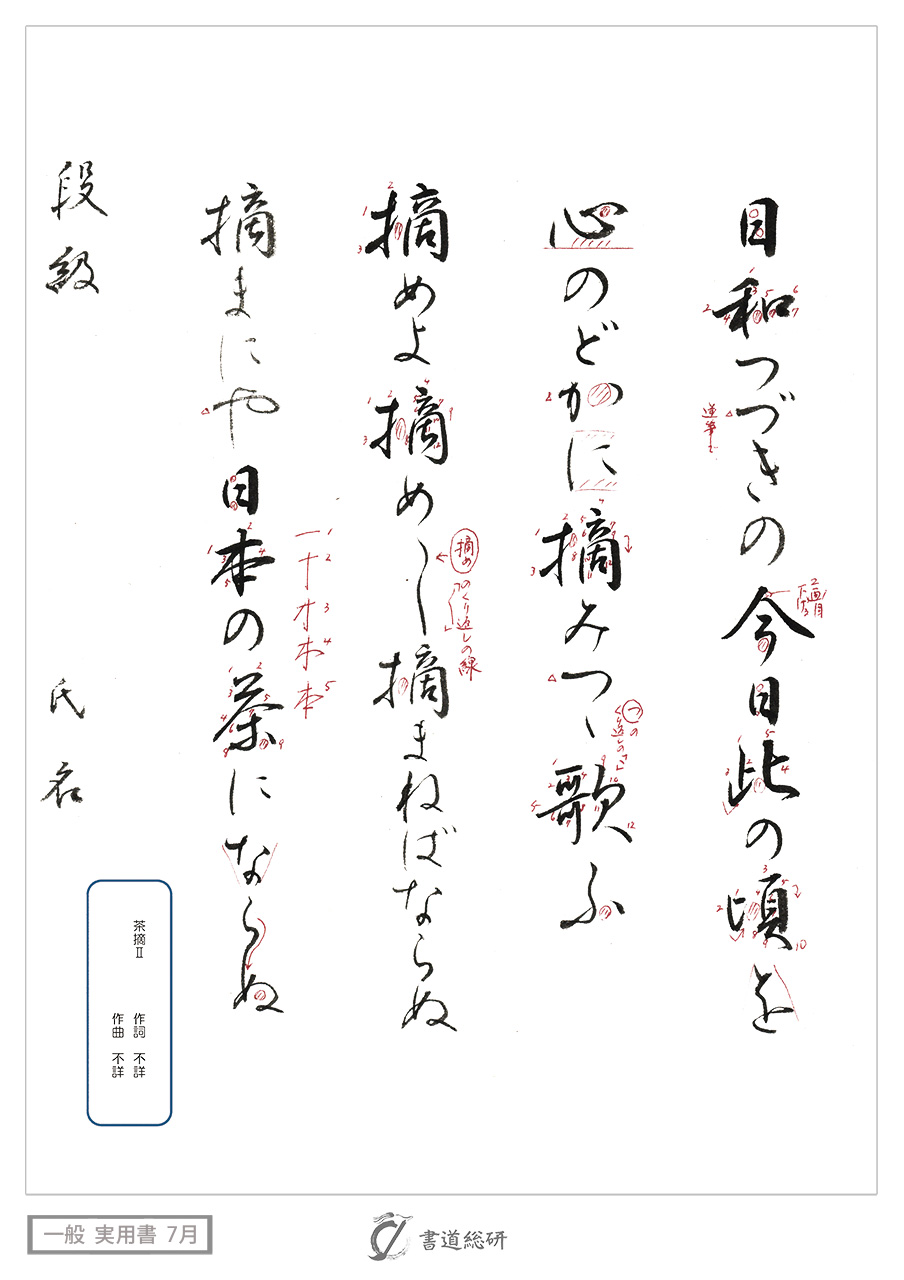 日和つづきの今日此の頃を
心のどかに摘みつゝ歌ふ
摘めよ摘め〱摘まねばならぬ
摘まにや日本の茶にならぬ
段級 氏名
2画目
下げる
連筆で
つの
返しの
摘め のくり返しの線
一十オ木本
茶摘Ⅱ
作詞 不詳
作曲 不詳
一般 実用書 7月
書道総研